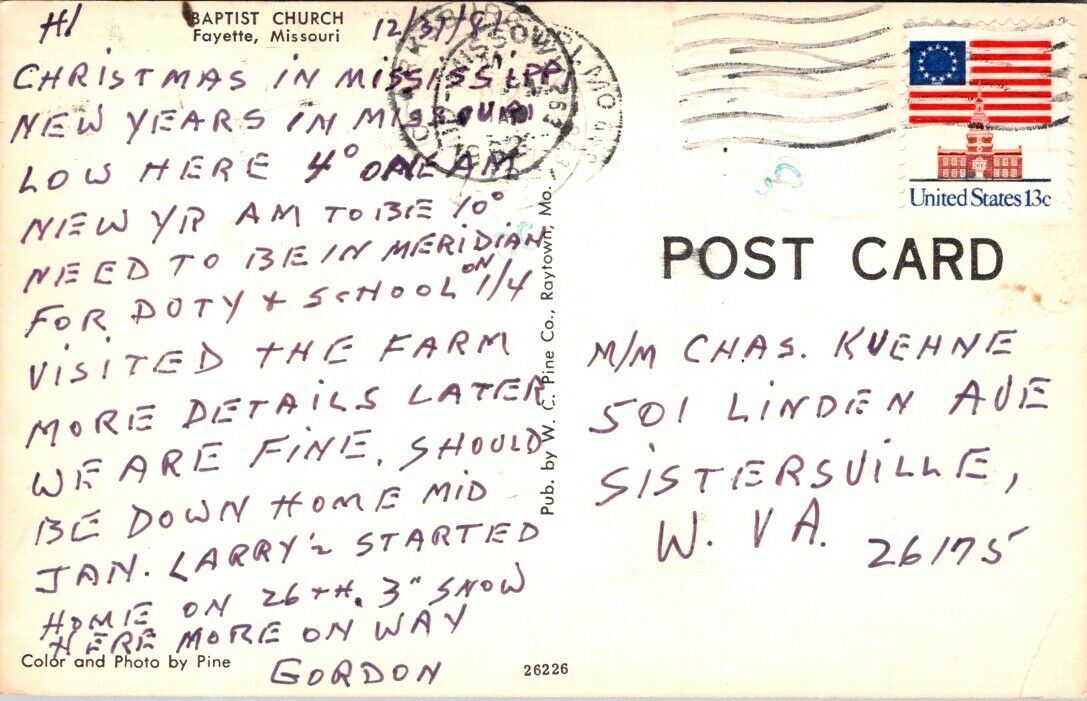 BAPTIST CHURCH
Fayette, Missouri
HI 12/31/81
CHRISTMAS IN MISSISSIPPI
NEW YEARS IN MISSOURI
LOW HERE 4° ONE AM
NEW YR AM TO BE 10°
NEED TO BE IN MERIDIAN
FOR DUTY & SCHOOL ON 1/4
VISITED THE FARM
MORE DETAILS LATER
WE ARE FINE. SHOULD
BE DOWN HOME MID
JAN. LARRY'S STARTED
HOME ON 26TH. 3" SNOW
HERE MORE ON WAY
GORDON
Color and Photo by Pine
26226
Pub. by W. C. Pine Co., Raytown, Mo.
United States 13c
POST CARD
M/M CHAS. KUEHNE
501 LINDEN AVE
SISTERSVILLE,
W. VA. 26175